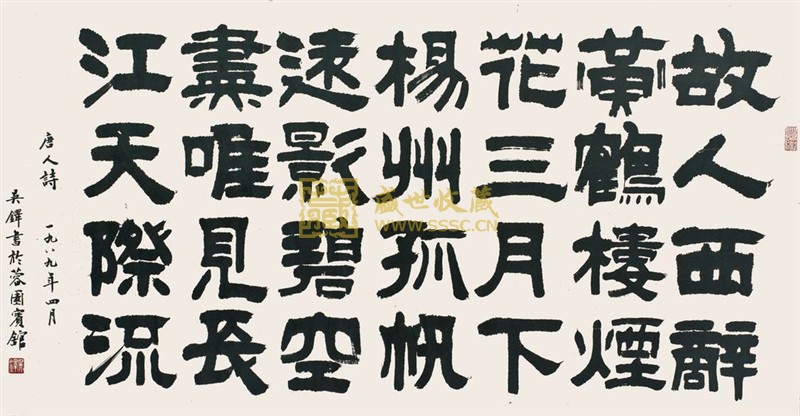 故人西辭
黄鶴樓煙
花三月下
楊州孤帆
遠影碧空
盡唯見長
江天際流
唐人詩 一九八九年四月
吳鐸書於蓉園賓舘
盛世收藏
WWW.SSSC.CN